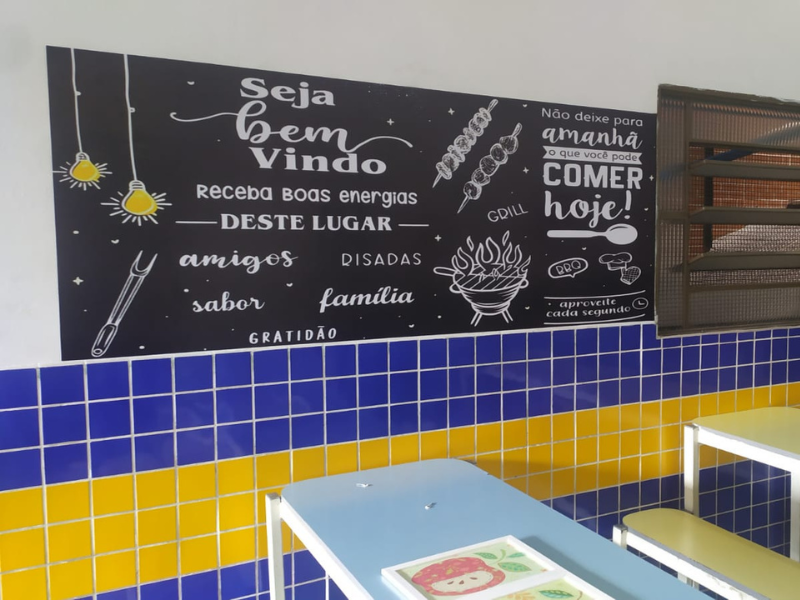 Seja
bem
Vindo
Receba Boas energias
DESTE LUGAR
amigos RISADAS
sabor família
GRATIDÃO
GRILL
Não deixe para
amanhã
o que você pode
COMER
hoje!
BBQ
aproveite
cada segundo